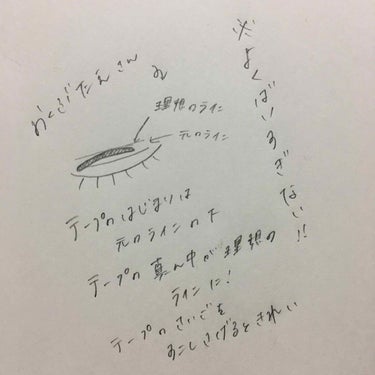 おくぶたえさん
理想のライン
元のライン
テープのはじまりは
元のラインの下
テープの真ん中が理想の
ラインに!
テープのさいごを
すこしさげるときれい
※よくばりすぎない!!